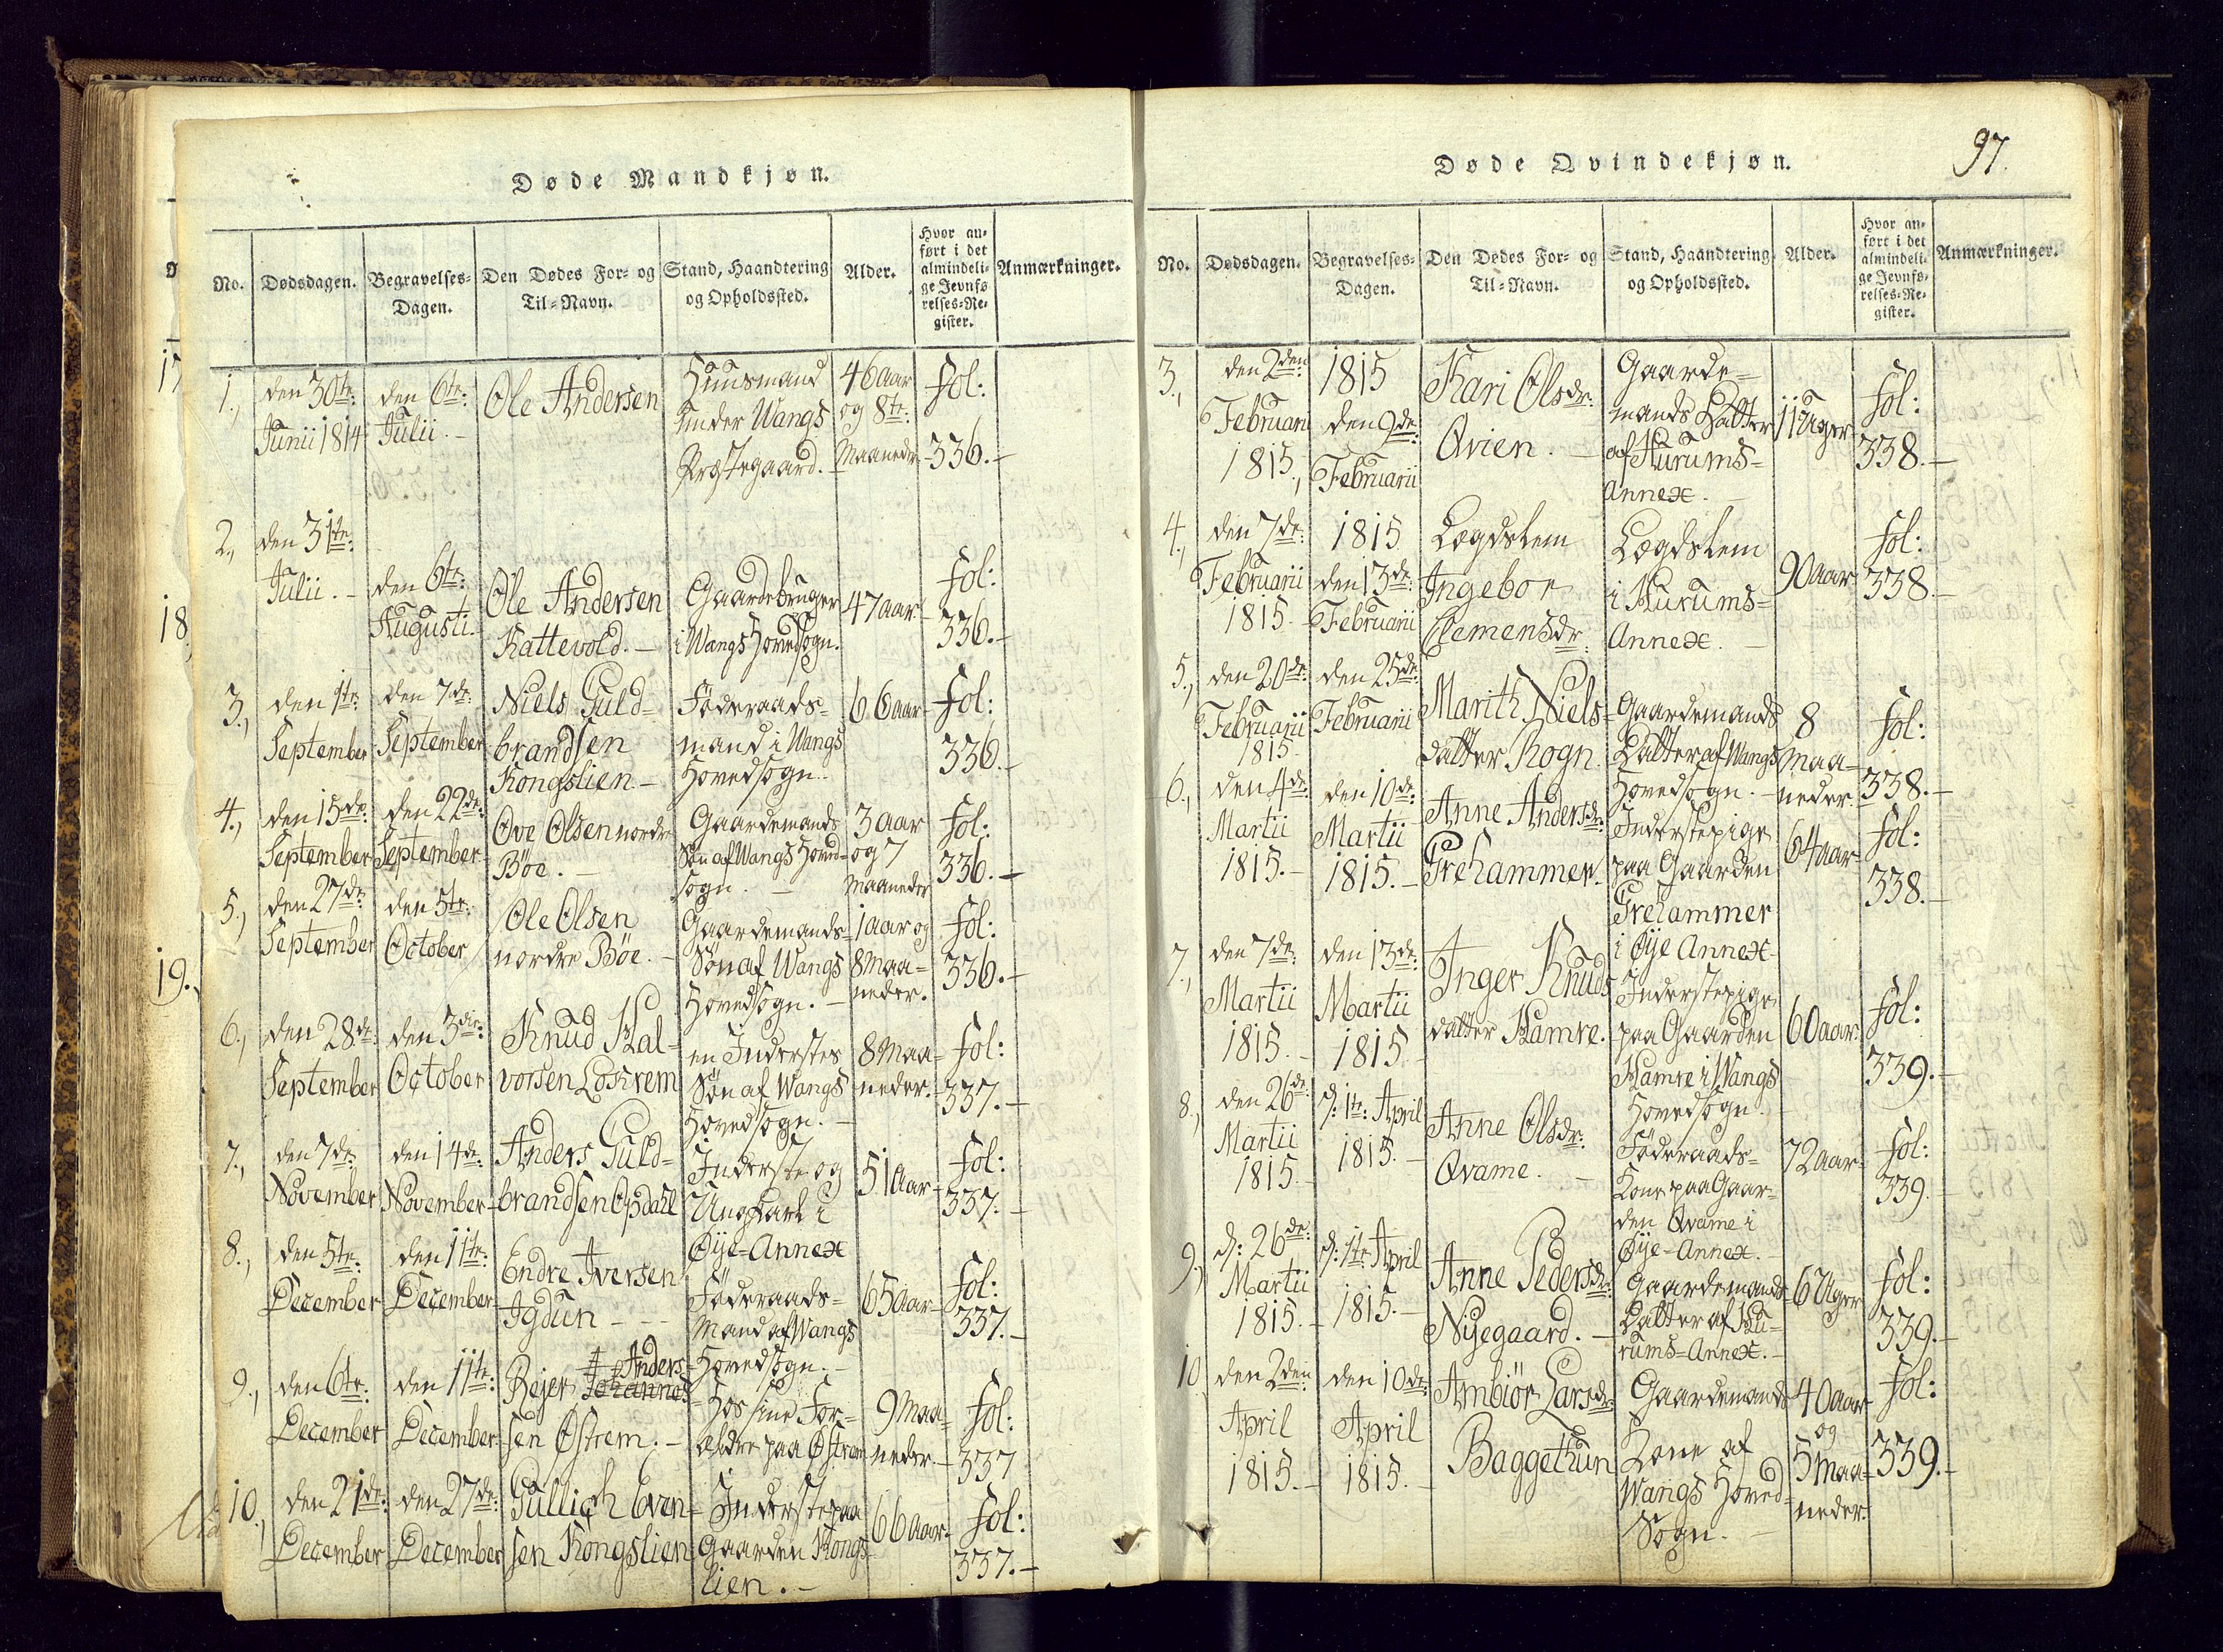 Døde Mandkjøn.
No.
Dødsdagen.
Begravelses-
Dagen.
Den Dødes For- og
Til-Navn.
Stand, Haandtering
og Opholdssted.
Alder.
Hvor an-
ført i det
almindeli-
ge Jevnfø-
relses-Re-
gister.
Anmærkninger.
17
18,
19.,
1.,
den 30te:
Junii 1814
den 6te:
Julii.-
Ole Andersen
Huusmand
under Wangs
Præstegaard.
46 aar
og 8te:
Maaneder
fol:
336.-
2.,
den 31te:
Julii.-
den 6te:
Augusti.
Ole Andersen
Kattevold.-
Gaardebruger
i Wangs Hovedsogn.
47 aar
fol:
336.-
3.,
den 1te:
September
den 7de:
September
Niels Guld-
brandsen
Kongslien-
Föderaads-
mand i Wangs
Hovedsogn.
66 aar
fol:
336.-
4.,
den 15de:
September
den 22de:
September
Ove Olsen nordre
Böe.-
Gaardemands
Søn af Wangs Hoved-
sogn.-
3 aar
og 7
Maaneder
fol:
336.-
5.,
den 27de:
September
den 5te:
October
Ole Olsen
nordre Böe.-
Gaardemands-
Søn af Wangs
Hovedsogn.-
1 aar og
8 Maa-
neder.
fol:
336.-
6.,
den 28de:
September
den 3die:
October
Knud Hal-
vorsen Loskrem
en Inderstes
Søn af Wangs
Hovedsogn.-
8 Maa-
neder.-
fol:
337.-
7.,
den 7de:
November
den 14de:
November
Anders Guld-
brandsen Opdahl
Inderste og
Ungkarl i
Øije-Annex
51 aar-
fol:
337.-
8.,
den 5te:
December
den 11te:
December
Endre Iversen
Igdun---
Föderaads-
Mand af Wangs
Hovedsogn.-
65 aar-
fol:
337.-
9.,
den 6te:
December
den 11te:
December
Anders-
Rejer Johannes-
sen Østrem.-
Hos sine For-
ældre paa Østrem
9 Maa-
neder.-
fol:
337
10.,
den 21de:
December
den 27de:
December
Gullich Even-
sen Kongslien
Inderste paa
Gaarden Kongs-
lien.-
66 aar-
fol:
337.-
97.
Døde Qvindekjøn.
No.
Dødsdagen.
Begravelses-
Dagen.
Den Dødes For- og
Til-Navn.
Stand, Haandtering
og Opholdssted.
Alder.
Hvor an-
ført i det
almindeli-
ge Jevnfø-
relses-Re-
gister.
Anmærkninger.
3.,
den 2den
Februarii
1815.,
1815
den 9de:
Februarii
Kari Olsdr:
Qvien.-
Gaarde-
mands Datter
af Hurums-
Annex.-
11 Uger
fol:
338.-
4.,
den 7de:
Februarii
1815.
1815
den 13de:
Februarii
Lægdslem
Ingebor
Clemensdr:
Lægdslem
i Hurums-
Annex.-
90 aar
fol:
338.-
5.,
den 20de:
Februarii
1815.
den 25de:
Februarii
Marith Niels-
datter Rogn.
Gaardemands
Datter af Wangs
Hovedsogn.-
8
Maa-
neder
fol:
338.-
6.,
den 4de:
Martii
1815.-
den 10de:
Martii
1815.-
Anne Andersdr:
Grehammer.
Inderstepige
paa Gaarden
Grehammer
i Øije Annex-
64 aar-
fol:
338.-
7.,
den 7de:
Martii
1815.-
den 13de:
Martii
1815.-
Inger Knuds
datter Hamre.
Inderstepige
paa Gaarden
Hamre i Wangs
Hovedsogn.-
60 aar.
fol:
339.-
8.,
den 26de:
Martii
1815.-
d: 1te: April
1815.-
Anne Olsdr:
Qvame.-
Föderaads-
Kone paa Gaar-
den Qvame i
Øije-Annex.-
72 aar-
fol:
339.-
9.,
d: 26de:
Martii
1815.-
d: 1te: April
1815.-
Anne Pedersdr:
Nijegaard.-
Gaardemands-
Datter af Hu-
rums-Annex.-
6 Uger
fol:
339.-
10
den 2den
April
1815.-
den 10de:
April
1815.-
Ambiör Larsdr:
Baggethun
Gaardemands
Kone af
Wangs Hoved-
Sogn.-
40 aar
og
5 Maa-
neder.
fol:
339.-